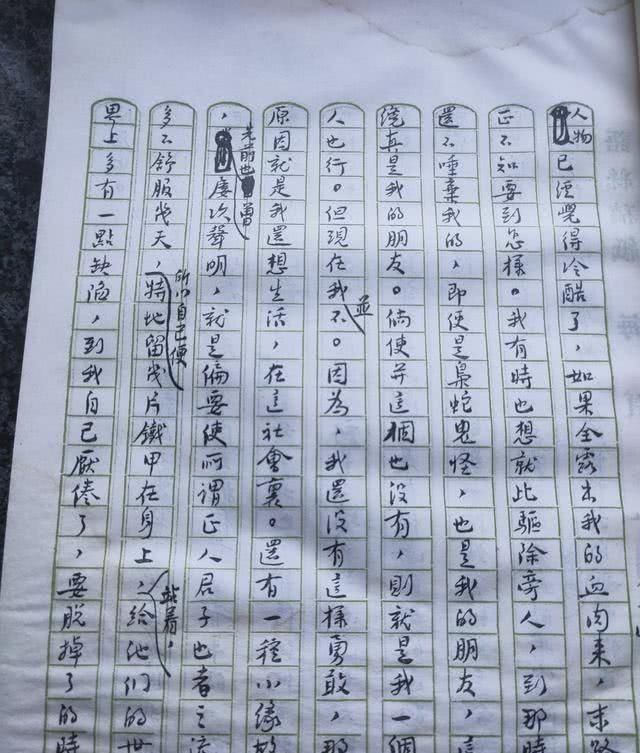 人物已經覺得冷酷了，如果全露出我的血肉來，末路
正不知要到怎樣。我有時也想就此驅除旁人，到那時
還不唾棄我的，即便是梟蛇鬼怪，也是我的朋友，這
纔真是我的朋友。倘使并這個也没有，則就是我一個
人也行。但現在我並不。因為，我還没有這樣勇敢，那
原因就是我還想生活，在這社會裏。還有一種小緣故
，先前也曾屢次聲明，就是偏要使所謂正人君子也者之流
多不舒服幾天，所以自己便特地留幾片鐵甲在身上，站着，給他們的世
界上多有一點缺陷，到我自己厭倦了，要脫掉了的時